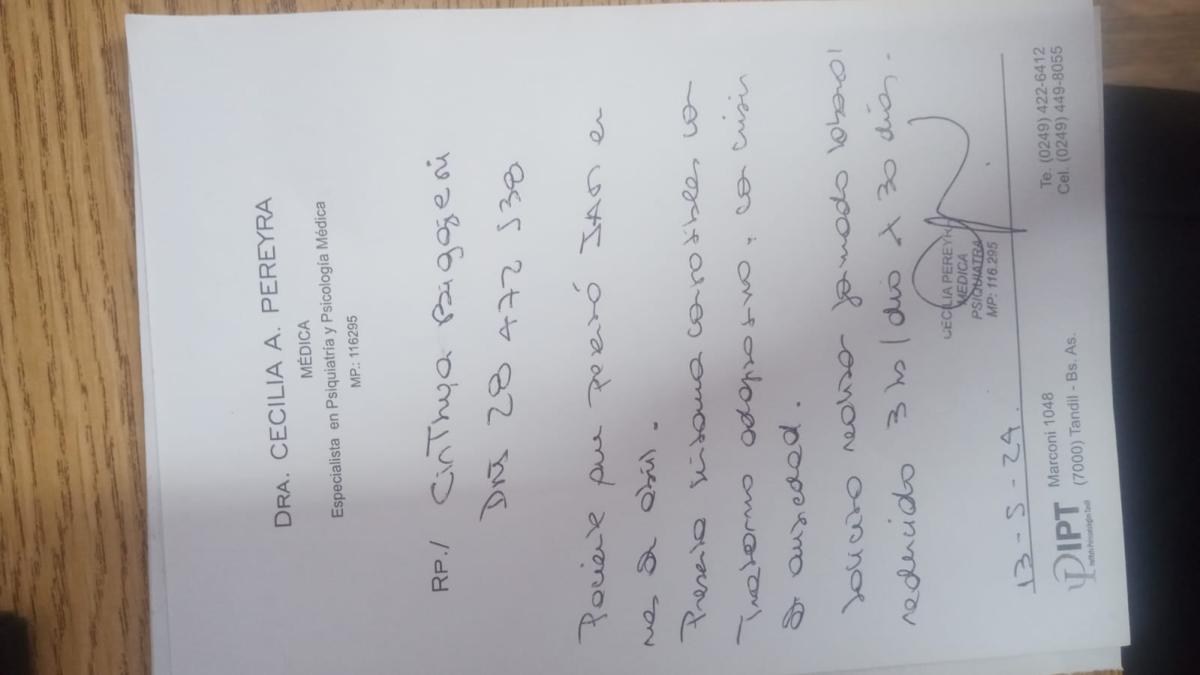 DRA. CECILIA A. PEREYRA
MÉDICA
Especialista en Psiquiatría y Psicología Médica
MP.: 116295
RP./ Cinthya
DNI 28 472 538
Paciente que en
mes de abril.
Presenta sintomas compatibles con
Trastorno adaptativo, con crisis
de ansiedad.
solicito realizar jornada laboral
reducida 3 hs/dia x 30 dias.
CECILIA PEREYR
MEDICA
PSIQUIATRA
MP: 116.295
13-5-24
IPT
Marconi 1048
(7000) Tandil - Bs. As.
Te. (0249) 422-6412
Cel. (0249) 449-8055